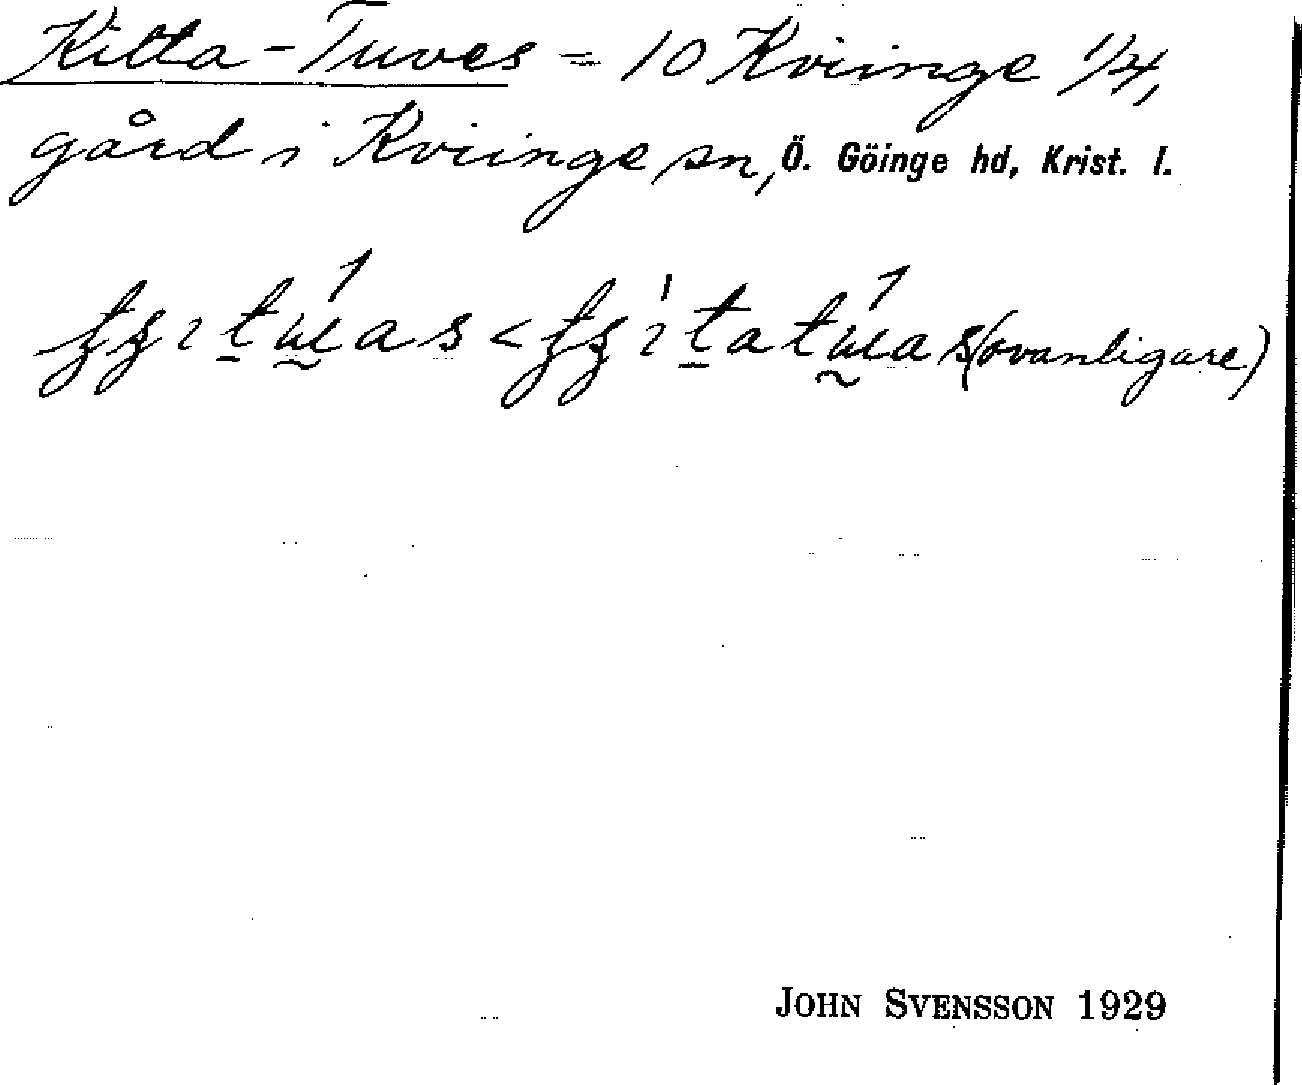 Kitta-Tuves = 10 Kviinge 1/4,
gård i Kviinge sn, Ö. Göinge hd, Krist. l.
(ovanligare)
JOHN SVENSSON 1929